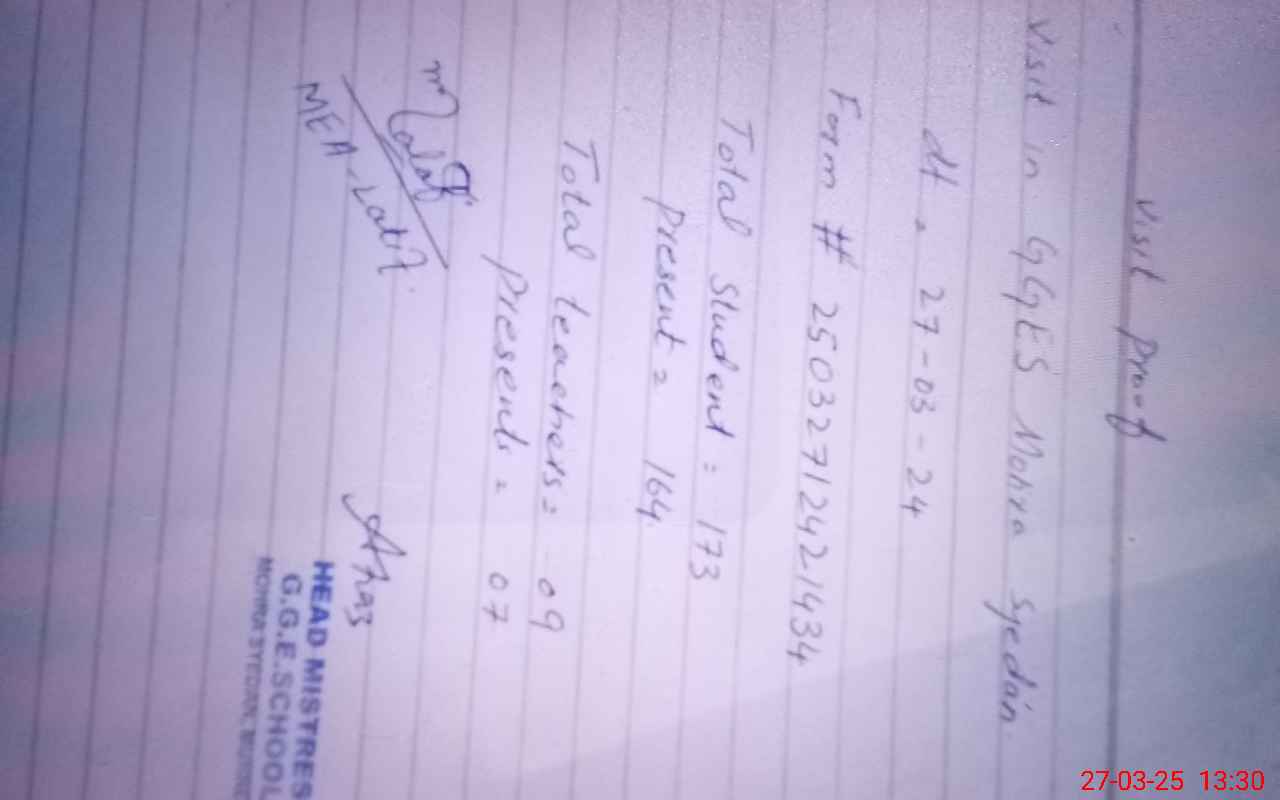 Visit Proof
Visit in GGES Mohra Syedan.
dt = 27-03-24
Form # 250327124214 34
Total Student = 173
Present = 164
Total teachers = 09
Presents = 07
MEA-Latif
HEAD MISTRES
G.G.E.SCHOOL
MOHRA SYEDAN,
27-03-25 13:30